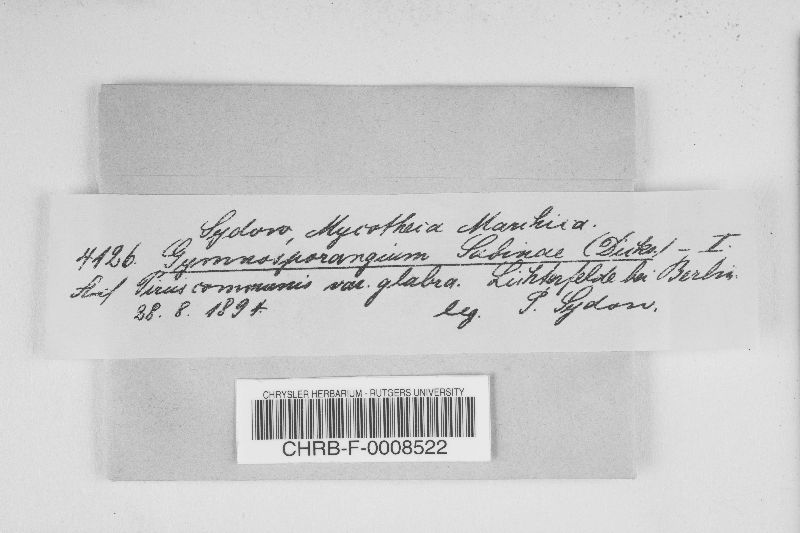 Sydow, Mycotheca Marchica.
4126. Gymnosporangium Sabinae (Dicks) - I.
Auf Pirus communis var. glabra. Lichterfelde bei Berlin.
28. 8. 1894. leg. P. Sydow.
CHRYSLER HERBARIUM - RUTGERS UNIVERSITY
CHRB-F-0008522